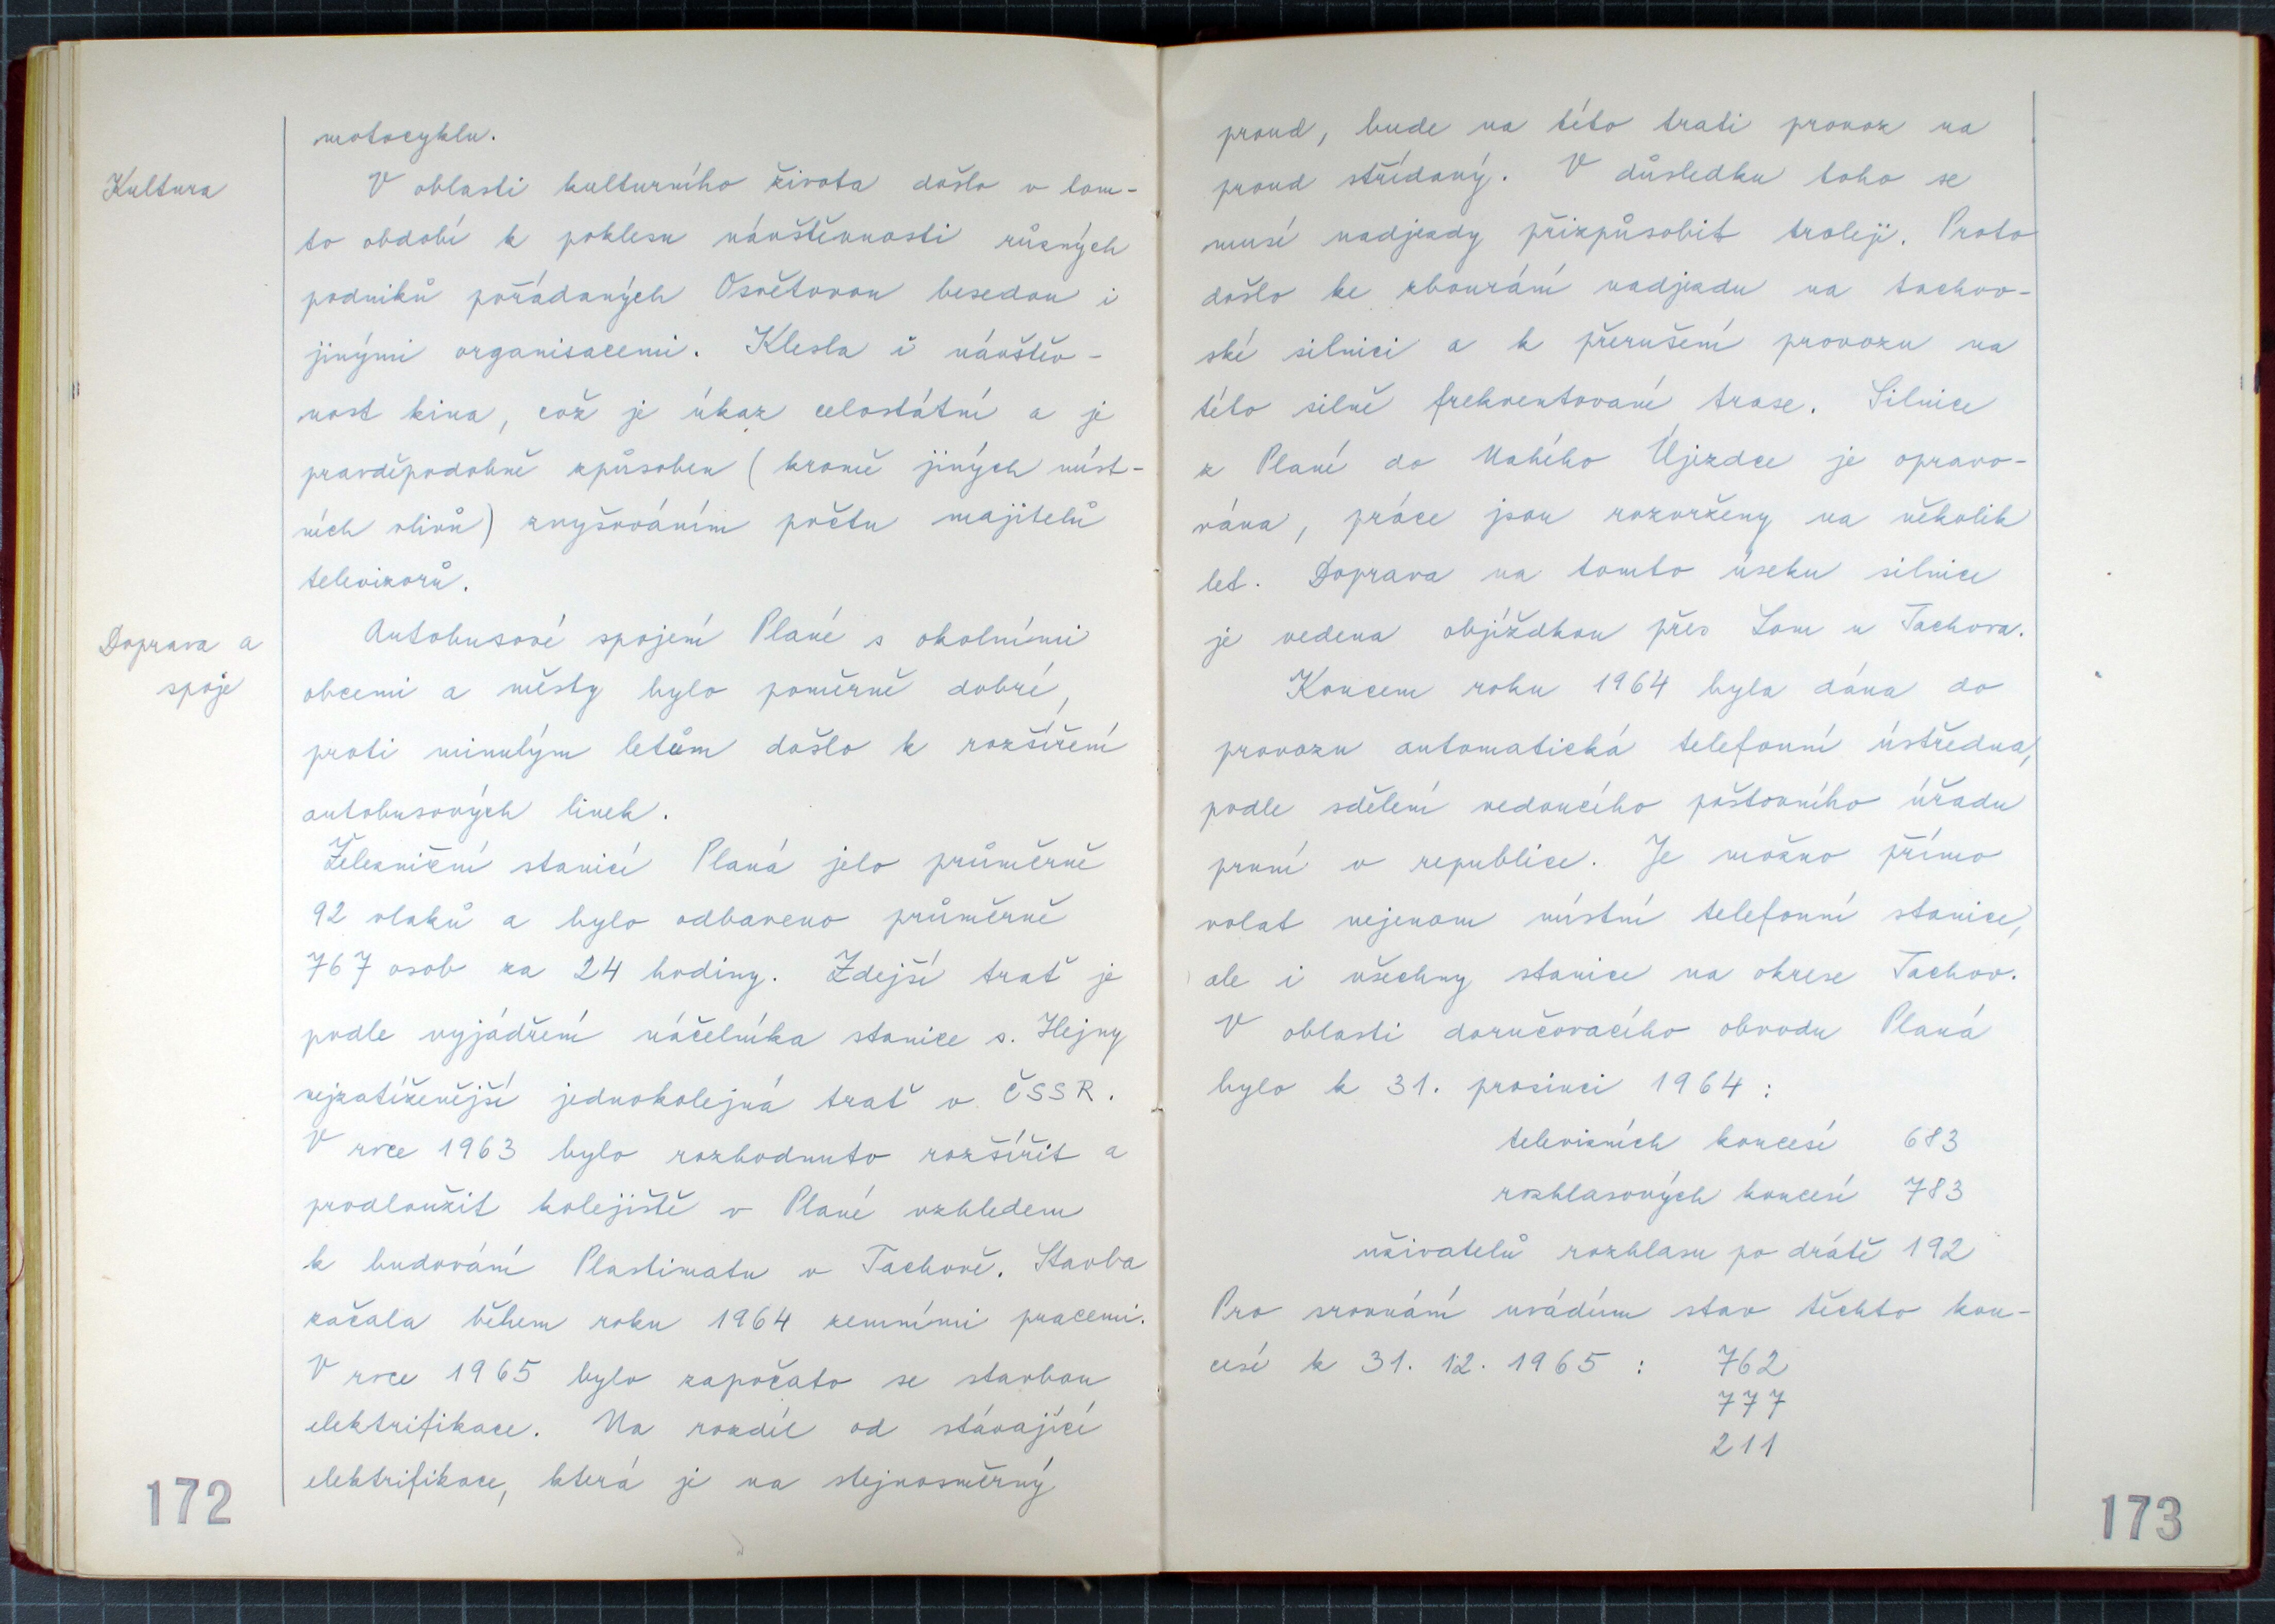 motocyklu.
Kultura
V oblasti kulturního života došlo v tom-
to období k poklesu návštěvnosti různých
podniků pořádaných Osvětovou besedou i
jinými organisacemi. Klesla i návštěv-
nost kina, což je úkaz celostátní a je
pravděpodobně způsoben (kromě jiných míst-
ních vlivů) zvyšováním počtu majitelů
televizorů.
Doprava a
spoje
Autobusové spojení Plané s okolními
obcemi a městy bylo poměrně dobré,
proti minulým letům došlo k rozšíření
autobusových linek.
Železniční stanicí Planá jelo průměrně
92 vlaků a bylo odbaveno průměrně
767 osob za 24 hodiny. Zdejší trať je
podle vyjádření náčelníka stanice s. Hejny
nejzatíženější jednokolejná trať v ČSSR.
V roce 1963 bylo rozhodnuto rozšířit a
prodloužit kolejiště v Plané vzhledem
k budování Plastimatu v Tachově. Stavba
začala během roku 1964 zemními pracemi.
V roce 1965 bylo započato se stavbou
elektrifikace. Na rozdíl od stávající
elektrifikace, která je na stejnosměrný
172
proud, bude na této trati provoz na
proud střídaný. V důsledku toho se
musí nadjezdy přizpůsobit troleji. Proto
došlo ke zbourání nadjezdu na tachov-
ské silnici a k přerušení provozu na
této silně frekventované trase. Silnice
z Plané do Nahého Újezdce je opravo-
vána, práce jsou rozvrženy na několik
let. Doprava na tomto úseku silnice
je vedena objížďkou přes Lom u Tachova.
Koncem roku 1964 byla dána do
provozu automatická telefonní ústředna,
podle sdělení vedoucího poštovního úřadu
první v republice. Je možno přímo
volat nejenom místní telefonní stanice,
ale i všechny stanice na okrese Tachov.
V oblasti doručovacího obvodu Planá
bylo k 31. prosinci 1964:
televizních koncesí 683
rozhlasových koncesí 783
uživatelů rozhlasu po drátě 192
Pro srovnání uvádím stav těchto kon-
cesí k 31. 12. 1965: 762
777
211
173